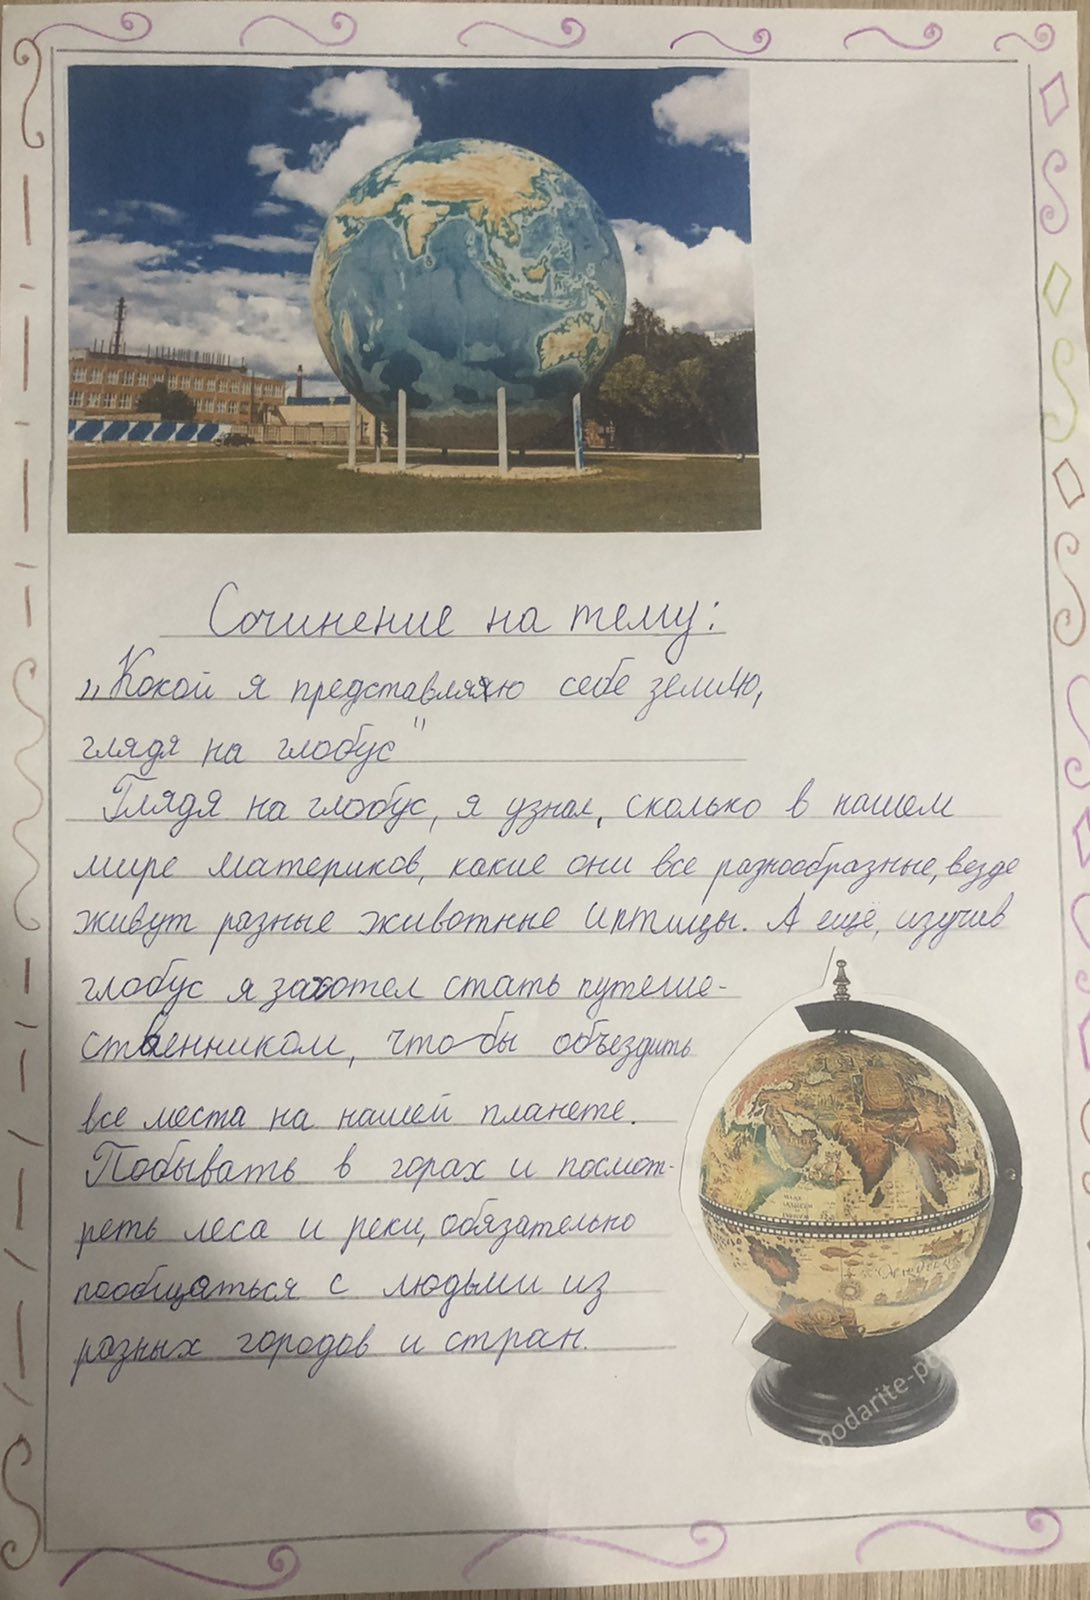 Сочинение на тему:
„Кокой я представляю себе землю,
глядя на глобус"
Глядя на глобус, я узнал, сколько в нашем
мире материков, какие они все разнообразные, везде
живут разные животные и птицы. А ещё, изучив
глобус я захотел стать путеше-
ственником, что бы объездить
все места на нашей планете.
Побывать в горах и посмот-
реть леса и реки, обязательно
пообщаться с людьми из
разных городов и стран.
podarite-po